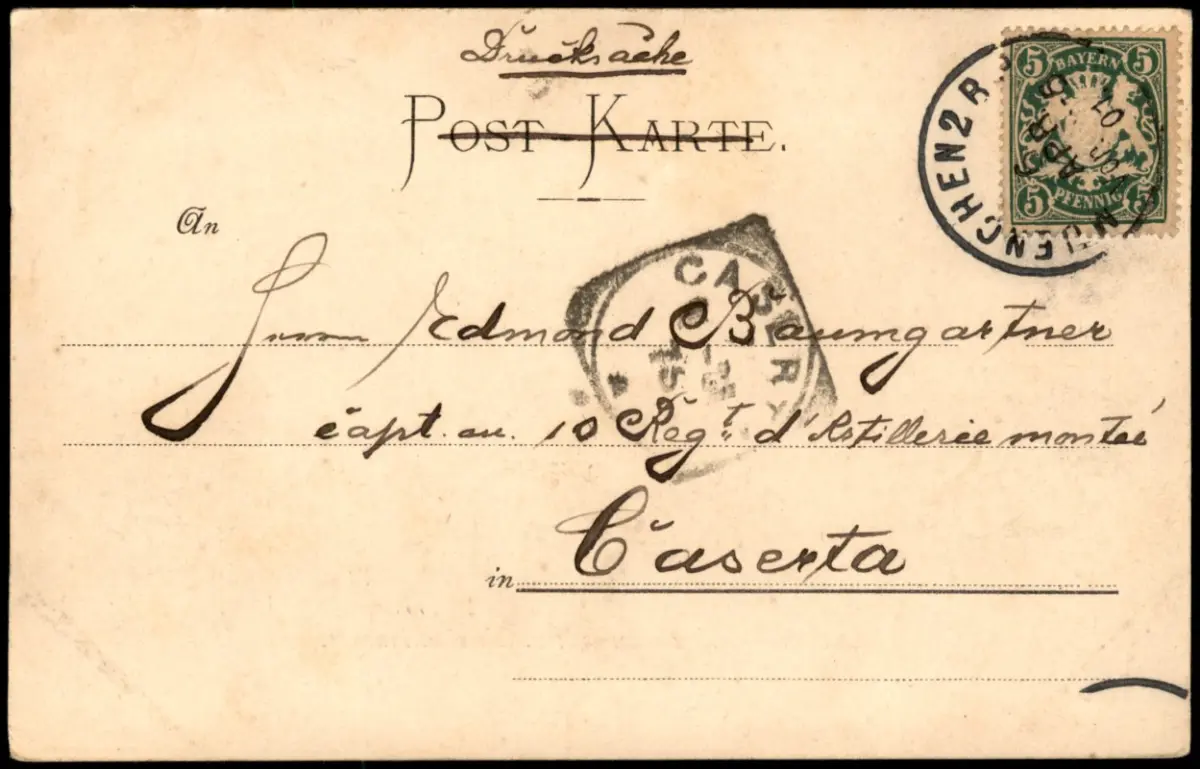 Drucksache
POST KARTE.
5 BAYERN 5
5 PFENNIG 5
MUENCHEN 2 R
APR. 01
An
Herrn Edmond Baumgartner
CASERTA
15
capt. au. 10 Régt. d'Artillerie montée
in Caserta